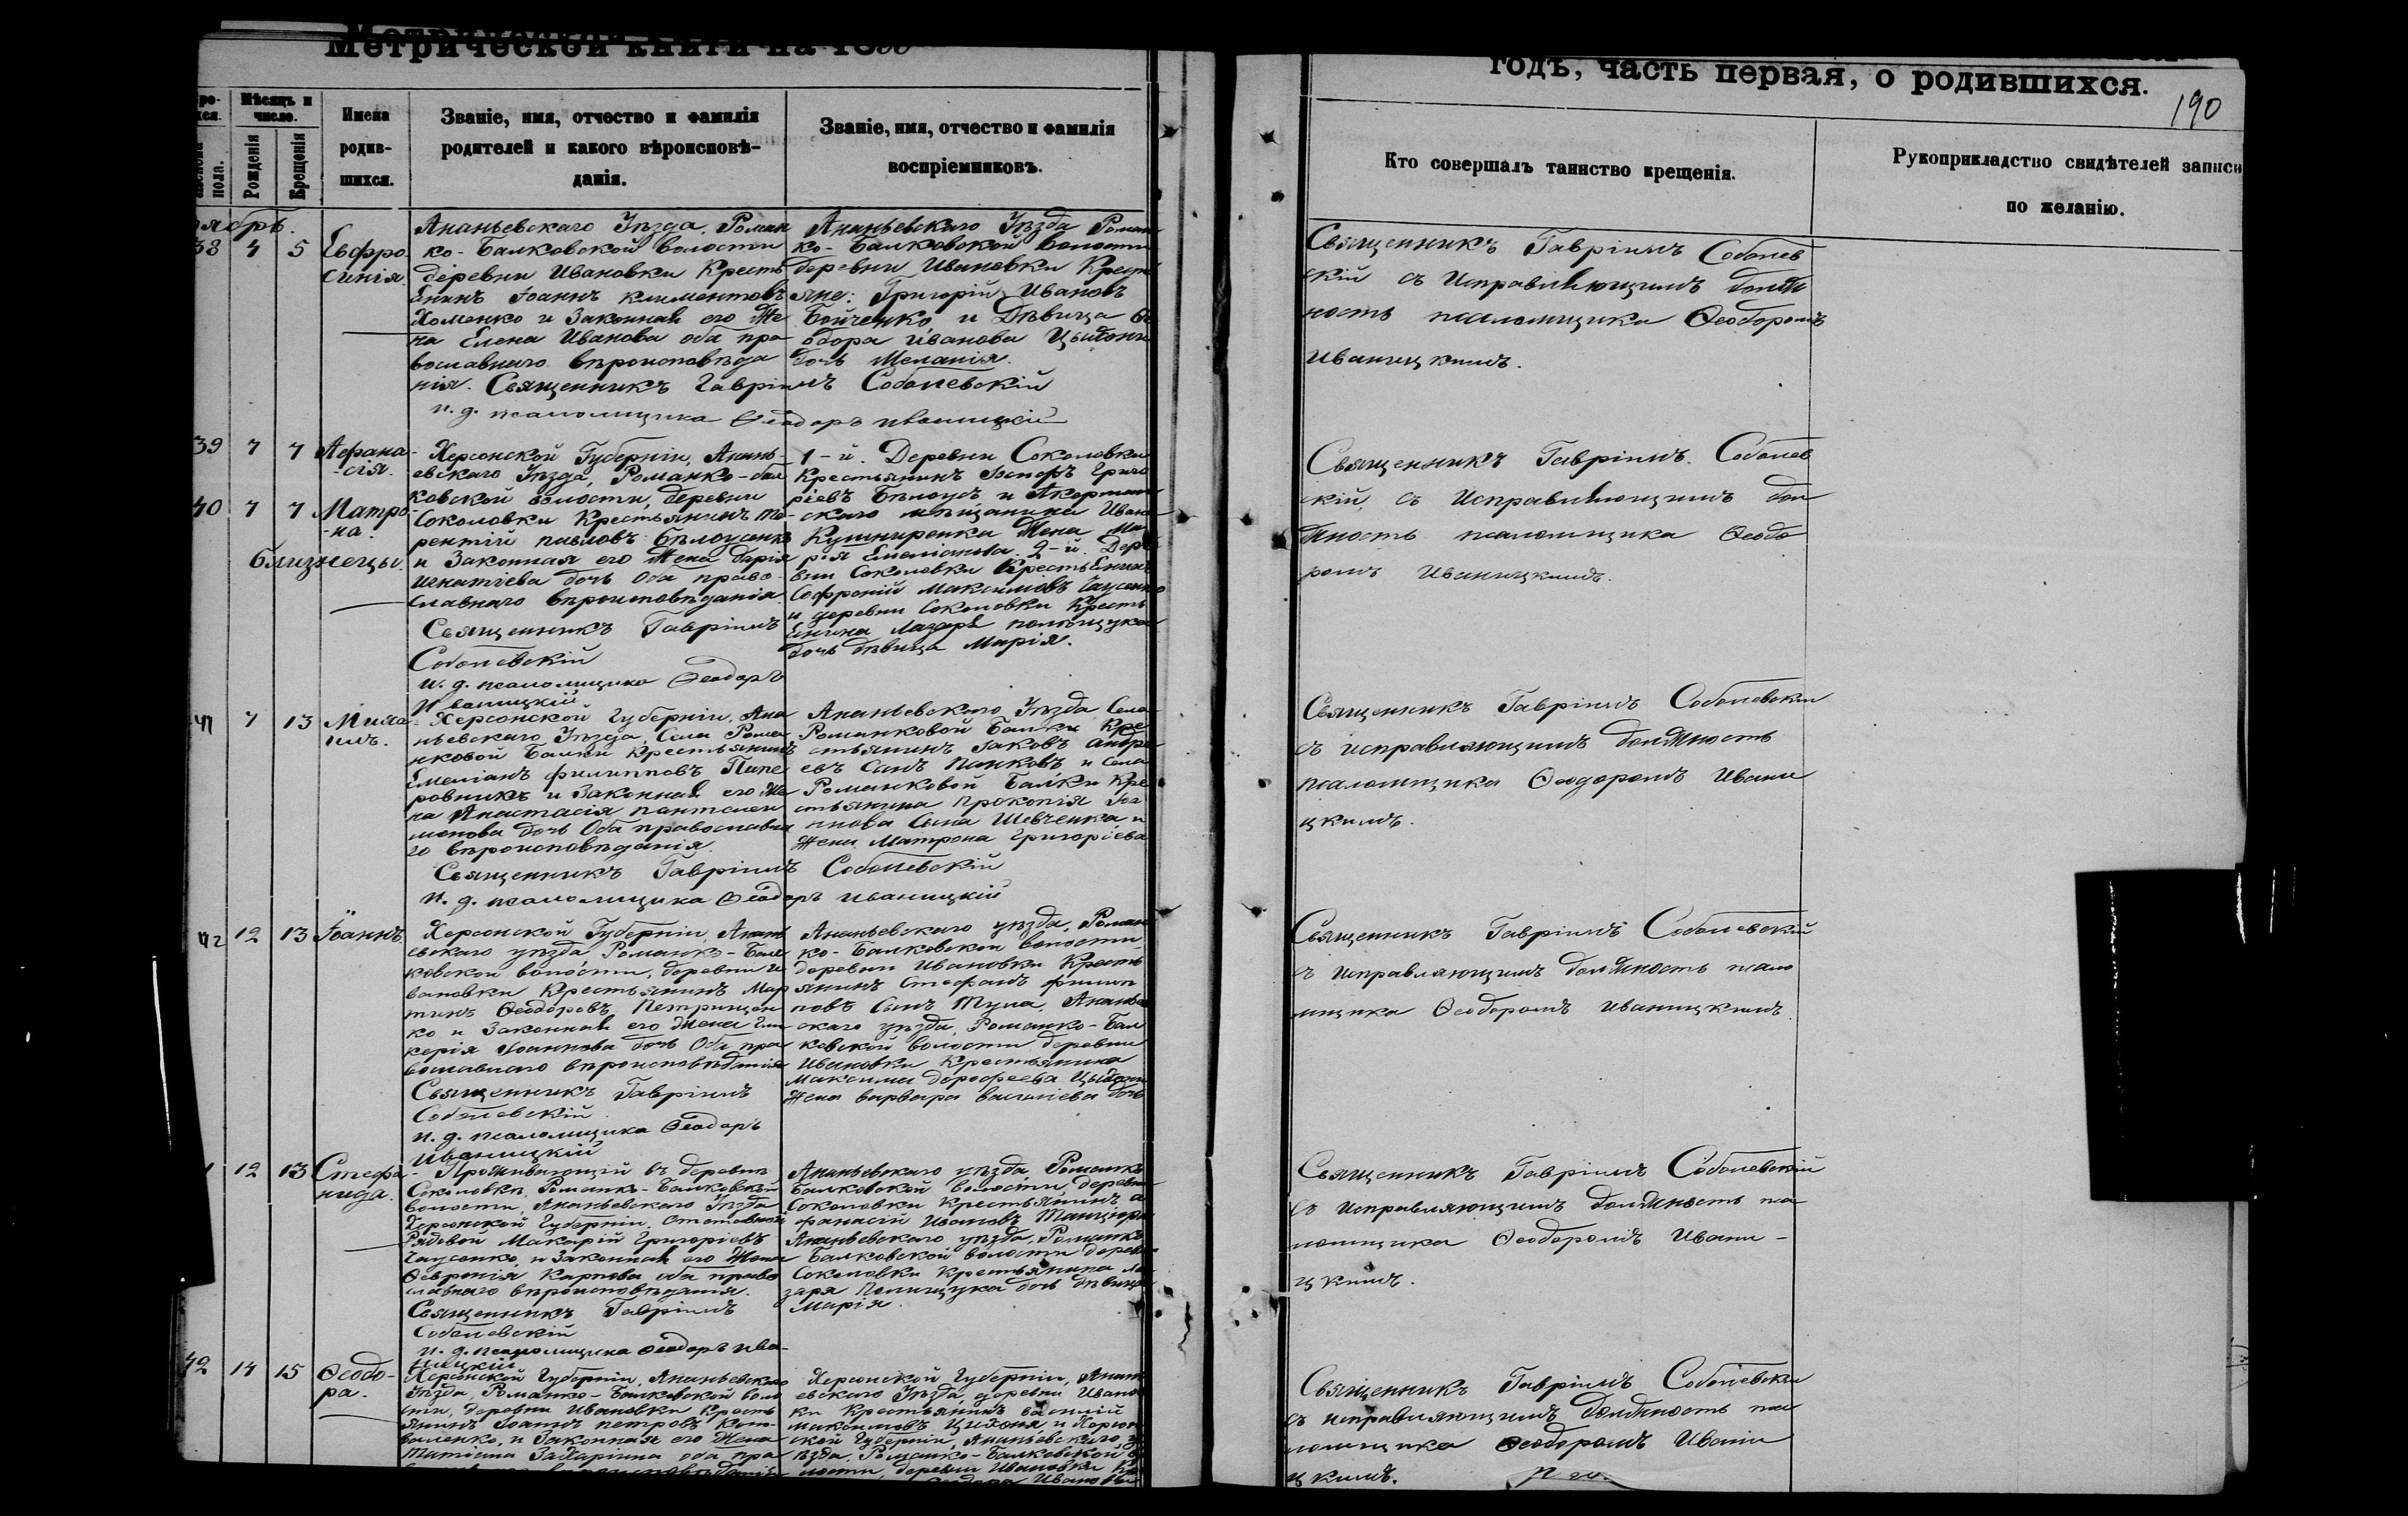 Метрической книги на 18
годъ, часть первая, о родившихся.
190
Мѣсяцъ и число.
Рожденія
Крещенія
Имена родив-шихся.
Званіе, имя, отчество и фамилія
родителей и какого вѣроисповѣ-
данія.
Званіе, имя, отчество и фамилія
воспріемниковъ.
Кто совершалъ таинство крещенія.
Рукоприкладство свидѣтелей записи
по желанію.
38 4 5 Евфро
синія.
Ананьевскаго Уѣзда, Роман
ко-Балковской волости
деревни Ивановки Кресть
янинъ Іоаннъ Климентовъ
Хоменко и Законная его Же
на Елена Иванова оба пра
вославнаго вѣроисповѣда
нія. Священникъ Гавріилъ Соболевскій
и. д. псаломщика Ѳеодоръ Иваницкій
Ананьевскаго Уѣзда Роман
ко-Балковской волости
деревни Ивановки Кресть
яне: Григорій Ивановъ
Бойченко и Дѣвица Ѳе
одора Иванова
дочь Меланія.
Священникъ Гавріилъ Соболев
скій съ Исправляющимъ долж
ность псаломщика Ѳеодоромъ
Иваницкимъ.
39 7 7 Афана-
-сія.
40 7 7 Матро
-на.
близнецы.
Херсонской Губерніи, Анань-
евскаго Уѣзда, Романко-бал
ковской волости, деревни
Соколовки Крестьянинъ Те-
рентій Павловъ Бѣлоусенко
и Законная его Жена Дарія
Игнатіева дочь Оба право-
славнаго вѣроисповѣданія.
Священникъ Гавріилъ
Соболевскій
и. д. псаломщика Ѳеодоръ
Иваницкій
1-й. Деревни Соколовки
Крестьянинъ Іосифъ Григо
ріевъ Бѣлоусъ и Акерман
скаго мѣщанина Ивана
Кушниренка Жена Ма
рія Емеліанова. 2-й. Дере
вни Соколовки Крестьянинъ
Софроній Максимовъ Гаусенко
и деревни Соколовки Кресть
янина Лазаря Полищука
дочь дѣвица Марія.
Священникъ Гавріилъ Соболев
скій, съ Исправляющимъ дол
жность псаломщика Ѳеодо
ромъ Иваницкимъ.
41 7 13 Миха
илъ.
Херсонской Губерніи, Ана
ньевскаго Уѣзда, Села Рома
нковой Балки Крестьянинъ
Емеліанъ Филипповъ Пипе
ровникъ и Законная его Же
на Анастасія Пантелеи
монова дочь Оба православна
го вѣроисповѣданія.
Священникъ Гавріилъ Соболевскій
и. д. псаломщика Ѳеодоръ Иваницкій
Ананьевскаго Уѣзда Села
Романковой Балки Кре
стьянинъ Іаковъ Андре
евъ Сынъ Панковъ и Села
Романковой Балки Кре
стьянина Прокопія
Сына Шевченка и
Жена Матрона Григоріева
Священникъ Гавріилъ Соболевскій
съ исправляющимъ должность
псаломщика Ѳеодоромъ Ивани
цкимъ.
42 12 13 Іоаннъ.
Херсонской Губерніи, Анань
евскаго уѣзда, Романко-Бал
ковской волости, деревни И
вановки Крестьянинъ Мар
тинъ Ѳеодоровъ Петрищен
ко и Законная его Жена Гли
керія Іоаннова дочь Оба пра
вославнаго вѣроисповѣданія
Священникъ Гавріилъ
Соболевскій
и. д. псаломщика Ѳеодоръ
Иваницкій
Ананьевскаго уѣзда, Роман
ко-Балковской волости
деревни Ивановки Кресть
янинъ Стефанъ Филип
повъ Сынъ Тула, Ананьев
скаго уѣзда, Романко-Бал
ковской волости деревни
Ивановки Крестьянина
Максима Дорофеева
Жена Варвара Василіева дочь
Священникъ Гавріилъ Соболевскій
съ исправляющимъ должность псало
мщика Ѳеодоромъ Иваницкимъ.
12 13 Стефа
нида.
Проживающій въ деревнѣ
Соколовкѣ, Романко-Балковской
волости, Ананьевскаго Уѣзда
Херсонской Губерніи,
Рядовой Макарій Григоріевъ
Гаусенко, и Законная его Жена
Ѳевронія Карпова оба право
славнаго вѣроисповѣданія.
Священникъ Гавріилъ
Соболевскій
и. д. псаломщика Ѳеодоръ Ива-
ницкій
Ананьевскаго уѣзда Романко
Балковской волости, деревни
Соколовки Крестьянинъ А
фанасій Ивановъ Танцюра
Ананьевскаго уѣзда, Романко
Балковской волости деревни
Соколовки Крестьянина Ла
заря Полищука дочь дѣвица
Марія.
Священникъ Гавріилъ Соболевскій
съ исправляющимъ должность пса
ломщика Ѳеодоромъ Ивани-
цкимъ.
42 14 15 Ѳеодо-
ра.
Херсонской Губерніи, Ананьевскаго
Уѣзда, Романко-Балковской воло
сти, деревни Ивановки Кресть
янинъ Іоаннъ Петровъ Коно-
валенко, и Законная его Жена
Захаріина оба пра
Херсонской Губерніи, Анань
евскаго Уѣзда, деревни Иванов
ки Крестьянинъ Василій
Максимовъ и Херсон
ской Губерніи, Ананьевскаго у
ѣзда, Романко-Балковской в
лости, деревни Ивановки
Священникъ Гавріилъ Соболевскій
съ исправляющимъ должность пса
ломщика Ѳеодоромъ Ивани
цкимъ.